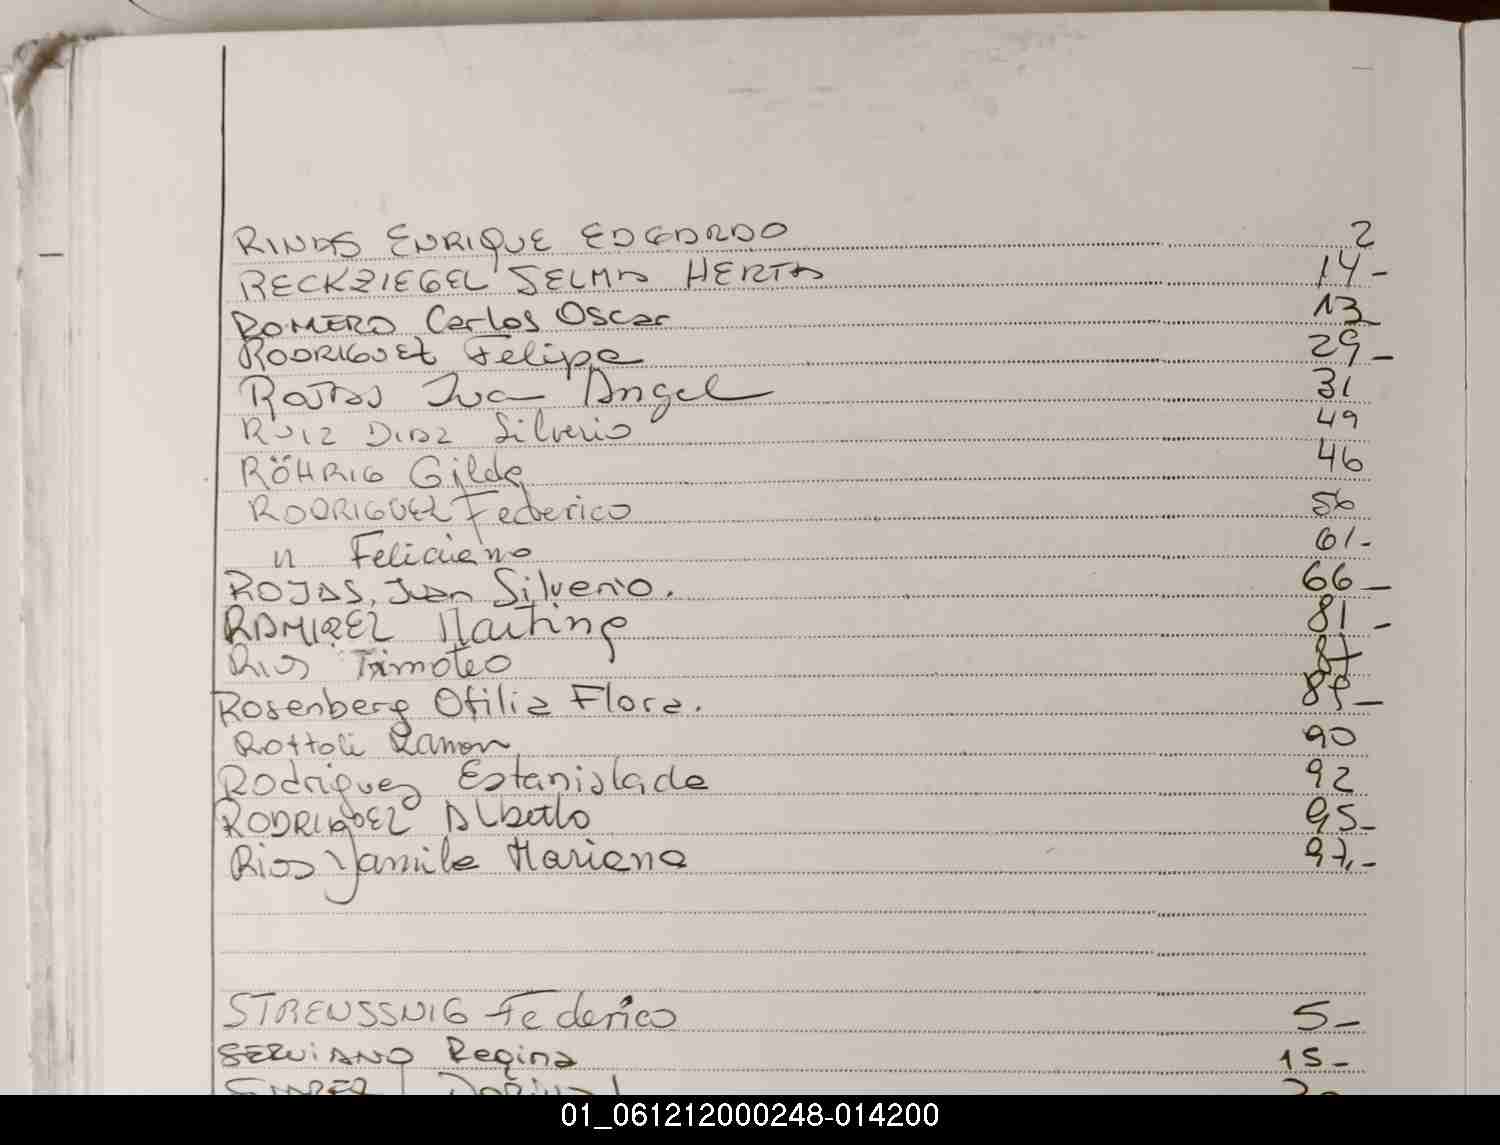 RINAS ENRIQUE EDGARDO 2
RECKZIEGEL SELMA HERTA 14-
ROMERO Carlos Oscar 13
RODRIGUEZ Felipe 29-
ROJAS Juan Angel 31
RUIZ DIAZ Silverio 49
RÖHRIG Gilda 46
RODRIGUEZ Federico 56
" Feliciano 61-
ROJAS, Juan Silverio. 66-
RAMIREZ Martina 81-
Rios Timoteo 87
Rosenberg Otilia Flora. 89-
Rottoli Ramon 90
Rodriguez Estanislada 92
RODRIGUEZ Alberto 95-
Rios Yamila Mariana 97,-
STREUSSNIG Federico 5-
SERVIANO Regina 15-
01_061212000248-014200